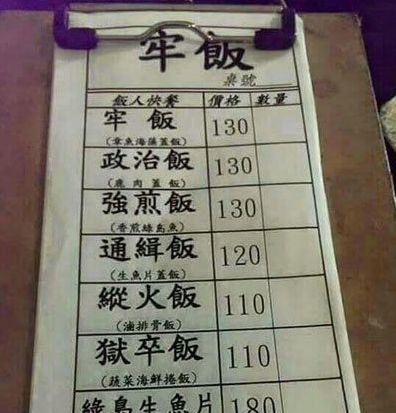 牢飯
桌號
飯人快餐 價格 數量
牢飯 130
(章魚海藻蓋飯)
政治飯 130
(鹿肉蓋飯)
強煎飯 130
(香煎綠島魚)
通緝飯 120
(生魚片蓋飯)
縱火飯 110
(滷排骨飯)
獄卒飯 110
(蔬菜海鮮捲飯)
綠島生魚片 180